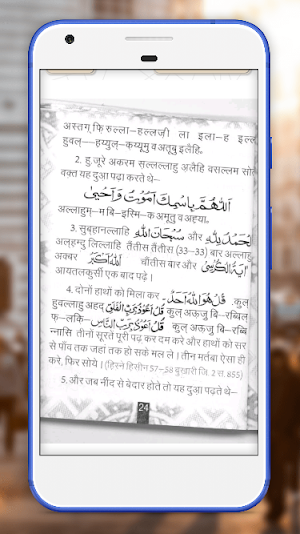 अस्तग़् फ़िरुल्ला–हल्लज़ी ला इला–ह इल्
हुवल्–––हय्युल्–कय्यूमु व अतूबु इलैहि.
2. हु.जूरे अकरम स़ल्लल्लाहु अलैहि वसल्लम सोते
वक्त यह दुआ पढ़ा करते थे–
اَللّٰهُمَّ بِاسْمِكَ اَمُوْتُ وَاَحْيٰى
अल्लाहुम्–म बि–इस्मि–क अमूतु व अह़्या.
3. सुब्हानल्लाहि سُبْحَانَ اللّٰهِ और اَلْحَمْدُ لِلّٰهِ
अल्हम्दु लिल्लाहि तैंतीस तैंतीस (33–33) बार अल्लाहु
अक्बर اَللّٰهُ اَكْبَرُ चौंतीस बार और اٰيَةُ الْكُرْسِيْ
आयतलकुर्सी एक बाद पढ़े ।
4. दोनों हाथों को मिला कर قُلْ هُوَ اللّٰهُ اَحَدٌ कुल
हुवल्लाहु अहद قُلْ اَعُوْذُ بِرَبِّ الْفَلَقِ कुल् अऊजु बि–रब्बिल्
फ़–लकि– قُلْ اَعُوْذُ بِرَبِّ النَّاسِ कुल् अऊजु बि–रब्बि
न्नासि तीनों सूरते पूरी पढ़ कर दम करे और हाथों को सर
से पाँव तक जहां तक हो सके मल ले । तीन मर्तबा ऐसा ही
करे, फिर सोये । (हिस्ने हिसीन 57–58 बुखारी जि. 2 स. 855)
5. और जब नींद से बेदार होते तो यह दुआ़ पढ़ते थे–
24